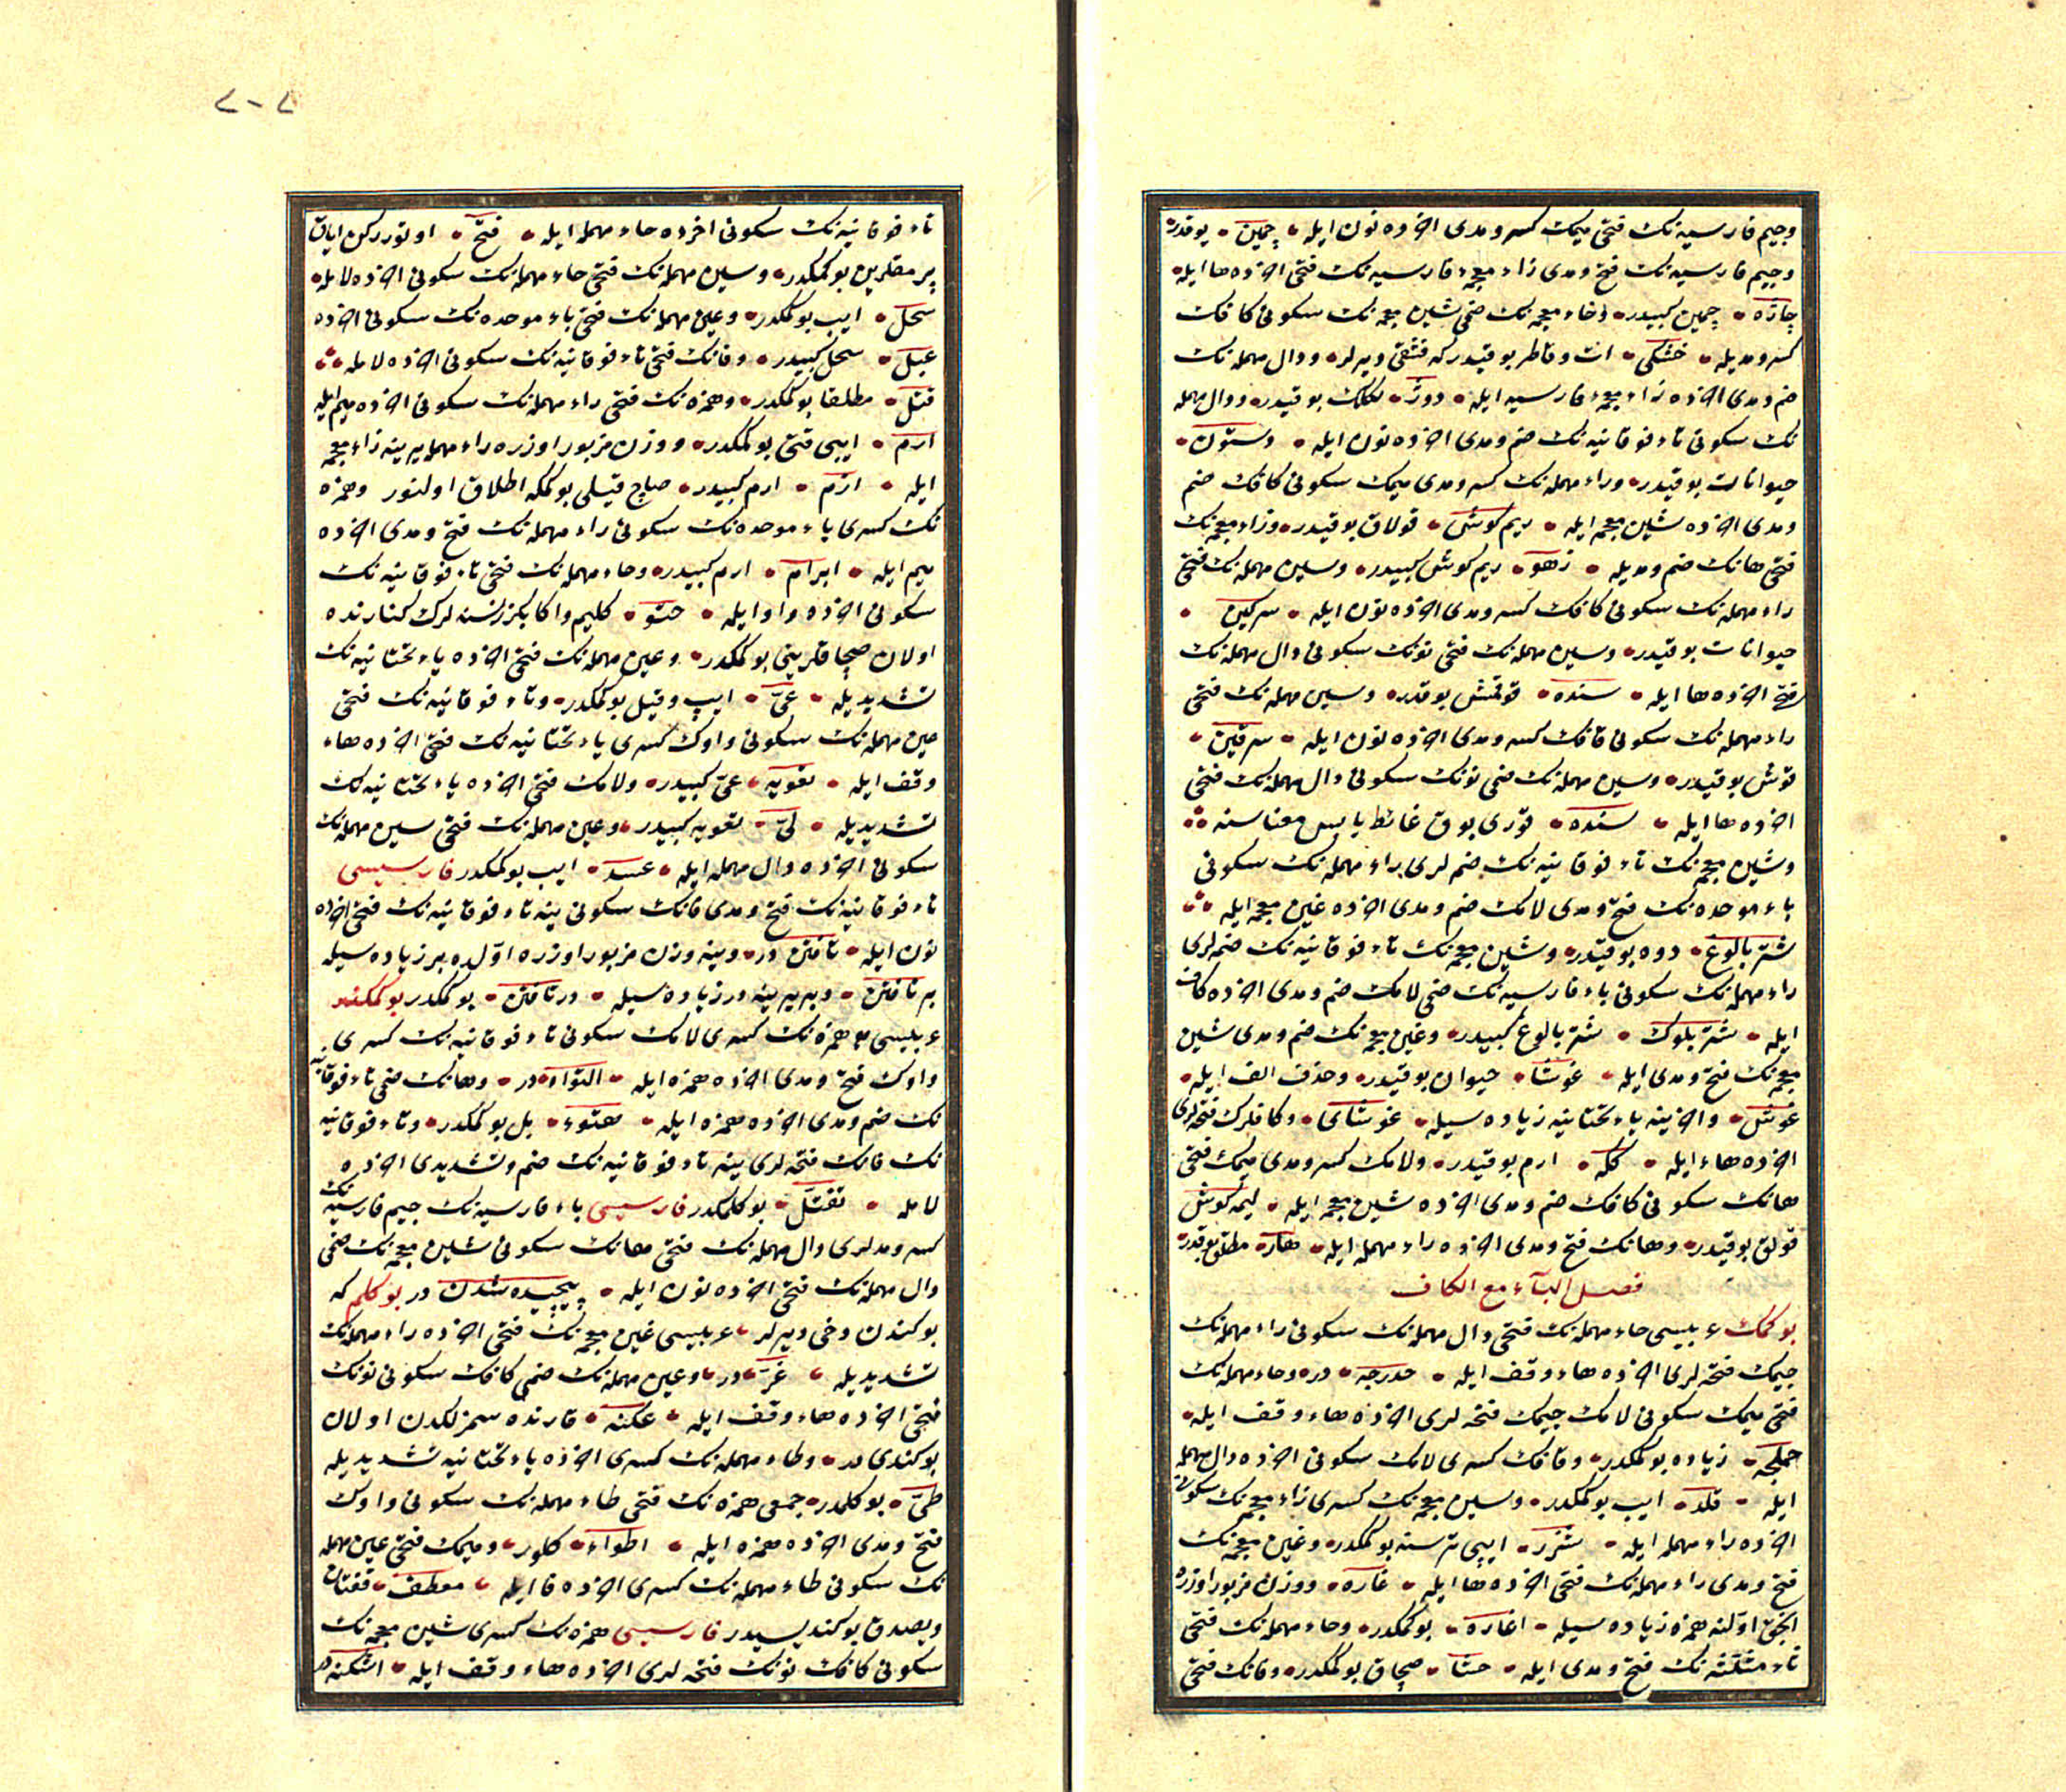 وجیم فارسیه‌نك فتحی میمك كسر و مدی اخرده نون ایله • چمین • بوقدر
وجیم فارسیه‌نك فتح و مدی زاء معجمهٔ فارسیه‌نك فتحی اخرده ها ایله
چاژه • چمین كبیدر • وخاء معجمه‌نك ضمی شین معجمه‌نك سكونی كافك
كسر و مدیله • خشكی • ات وقاطر بوقیدر كه فشقی دیرلر • ودال مهمله‌نك
ضم و مدی اخرده زاء معجمهٔ فارسیه ایله • دوژ • لكلك بوقیدر • ودال مهمله
نك سكونی تاء فوقانیه‌نك ضم و مدی اخرده نون ایله • دستون •
حیوانات بوقیدر • وراء مهمله‌نك كسر و مدی میمك سكونی كافك ضم
ومدی اخرده شین معجمه ایله • ریم كوش • قولاق بوقیدر • وزاء معجمه‌نك
فتحی هانك ضم و مدیله • زهو • ریم كوش كبیدر • وسین مهمله‌نك فتحی
راء مهمله‌نك سكونی كافك كسر و مدی اخرده نون ایله • سركین •
حیوانات بوقیدر • وسین مهمله‌نك فتحی نونك سكونی دال مهمله‌نك
فتحی اخرده ها ایله • سنده • قوقمش بوقدر • وسین مهمله‌نك فتحی
راء مهمله‌نك سكونی قافك كسر و مدی اخرده نون ایله • سرقین •
قوش بوقیدر • وسین مهمله‌نك ضمی نونك سكونی دال مهمله‌نك فتحی
اخرده ها ایله • سنده • قوری بوق غائط یابس معناسنه
وشین معجمه‌نك تاء فوقانیه‌نك ضم لری راء مهمله‌نك سكونی
باء موحده‌نك فتح و مدی لامك ضم و مدی اخرده غین معجمه ایله
شتر بالوغ • دوه بوقیدر • وشین معجمه‌نك تاء فوقانیه‌نك ضمه‌لری
راء مهمله‌نك سكونی باء فارسیه‌نك ضمی لامك ضم و مدی اخرده كاف
ایله • شتر پلوك • شتر بالوغ كبیدر • وغین معجمه‌نك ضم و مدی شین
معجمه‌نك فتح و مدی ایله • غوشا • حیوان بوقیدر • وحذف الف ایله
غوش • واخرینه یاء تحتانیه زیاده سیله • غوشای • وكافلرك فتحه‌لری
اخرده هاء ایله • ككه • ارم بوقیدر • ولامك كسر و مدی میمك فتحی
هانك سكونی كافك ضم و مدی اخرده شین معجمه ایله • لیمه كوش
قولق بوقیدر • وهانك فتح و مدی اخرده راء مهمله ایله • هار • مطلق بوقدر
فصل البآء مع الكاف
بوكمك عربیسی حاء مهمله‌نك فتحی دال مهمله‌نك سكونی راء مهمله‌نك
جیمك فتحه‌لری اخرده هاء وقف ایله • حدرجه • در • وحاء مهمله‌نك
فتحی میمك سكونی لامك جیمك فتحه لری اخرده هاء وقف ایله
حملجه • زیاده بوكمكدر • وقافك كسری لامك سكونی اخرده دال مهمله
ایله • قلد • ایپ بوكمكدر • وشین معجمه‌نك كسری زاء معجمه‌نك سكونی
اخرده راء مهمله ایله • شزر • ایپی ترسنه بوكمكدر • وغین معجمه‌نك
فتح و مدی راء مهمله‌نك فتحی اخرده ها ایله • غاره • ووزن مزبور اوزره
انجق اولنه همزه زیاده سیله • اغاره • بوكمكدر • وحاء مهمله‌نك فتحی
ثاء مثلثه‌نك فتح و مدی ایله • حثا • صچاق بوكمكدر • وفانك فتحی
٢-٧
تاء فوقانیه‌نك سكونی اخرده حاء مهمله ایله • فتح • اوتوررکن ایاق
پرمقلرین بوكمكدر • وسین مهمله‌نك فتحی حاء مهمله‌نك سكونی اخرده لامله
سحل • ایپ بوكمكدر • وعین مهمله‌نك فتحی باء موحده‌نك سكونی اخرده
عبل • سحل كبیدر • وفانك فتحی تاء فوقانیه‌نك سكونی اخرده لامله
فتل • مطلقا بوكمكدر • وهمزه‌نك فتحی راء مهمله‌نك سكونی اخرده میم ایله
ارم • ایپی قتی بوكمكدر • ووزن مزبور اوزره راء مهمله یرینه زاء معجمه
ایله • ازم • ارم كبیدر • صاچ قیلی بوكمكه اطلاق اولنور وهمزه
نك كسری باء موحده‌نك سكونی راء مهمله‌نك فتح و مدی اخرده
میم ایله • ابرام • ارم كبیدر • وحاء مهمله‌نك فتحی تاء فوقانیه‌نك
سكونی اخرده واو ایله • حتو • كلیم واكا بكزر نسنه لرك كنارنده
اولان صچاقلرینی بوكمكدر • وعین مهمله‌نك فتحی اخرده یاء تحتانیه‌نك
تشدیدیله • عیّ • ایپ وقیل بوكمكدر • وتاء فوقانیه‌نك فتحی
عین مهمله‌نك سكونی واوك كسری یاء تحتانیه‌نك فتحی اخرده هاء
وقف ایله • تعویه • عیّ كبیدر • ولامك فتحی اخرده یاء تحتانیه‌نك
تشدیدیله • لیّ • تعویه كبیدر • وعین مهمله‌نك فتحی سین مهمله‌نك
سكونی اخرده دال مهمله ایله • عسد • ایپ بوكمكدر فارسیسی
تاء فوقانیه‌نك فتح و مدی فانك سكونی ینه تاء فوقانیه‌نك فتحی اخرده
نون ایله • تافتن در • وینه وزن مزبور اوزره اوّلده بر زیاده سیله
بر تافتن • وبر یرینه در زیاده سیله • در تافتن • بوكمكدر بوكمكند
عربیسی همزه‌نك كسری لامك سكونی تاء فوقانیه‌نك كسری
واوك فتح و مدی اخرده همزه ایله • التواء در • وهانك ضمی تاء فوقانیه
نك ضم و مدی اخرده همزه ایله • هتوء • بل بوكمكدر • وتاء فوقانیه
نك فانك فتحه لری ینه تاء فوقانیه‌نك ضم و تشدیدی اخرده
لامله • تفتّل • بوكلمكدر فارسیسی باء فارسیه‌نك جیم فارسیه‌نك
كسر و مدلری دال مهمله‌نك فتحی هانك سكونی شین معجمه‌نك ضمی
دال مهمله‌نك فتحی اخرده نون ایله • پیچیده شدن در بوكلم كه
بوكندن دخی دیرلر • عربیسی غین معجمه‌نك فتحی اخرده راء مهمله‌نك
تشدیدیله • غرّ در • وعین مهمله‌نك ضمی كافك سكونی نونك
فتحی اخرده هاء وقف ایله • عكنه • قارنده سمزلكدن اولان
بوكندی در • وطاء مهمله‌نك كسری اخرده یاء تحتانیه تشدیدیله
طیّ • بوكلمدر • جمعی همزه‌نك فتحی طاء مهمله‌نك سكونی واوك
فتح و مدی اخرده همزه ایله • اطواء • كلور • ومیمك فتحی عین مهمله
نك سكونی طاء مهمله‌نك كسری اخرده فا ایله • معطف • قفتان
ویصدق بوكندیسیدر فارسیسی همزه‌نك كسری شین معجمه‌نك
سكونی كافك نونك فتحه لری اخرده هاء وقف ایله • اشكنه در